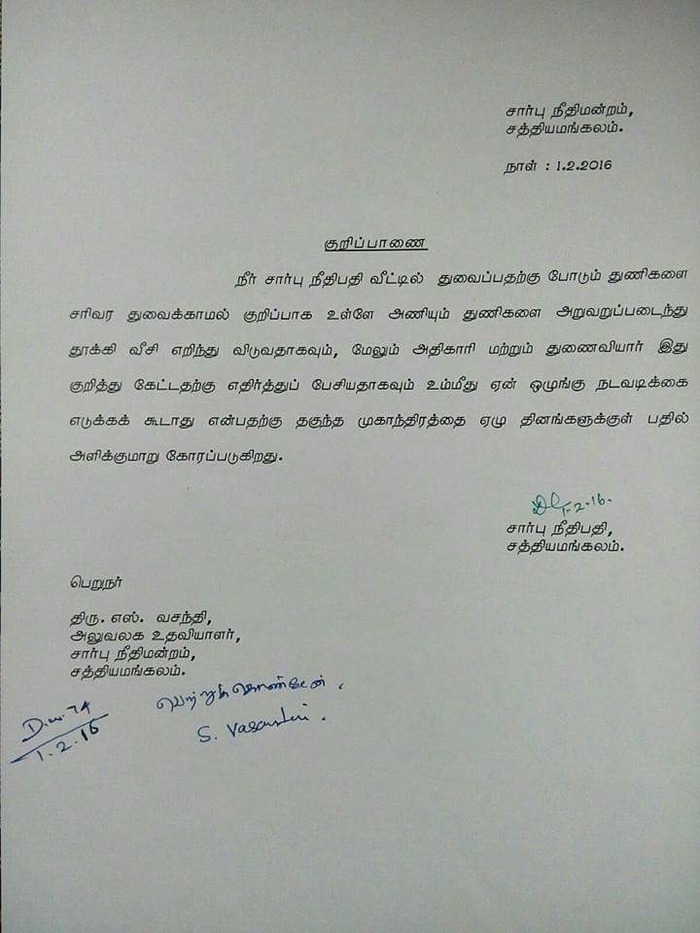 சார்பு நீதிமன்றம்,
சத்தியமங்கலம்.
நாள் : 1.2.2016
குறிப்பாணை
நீர் சார்பு நீதிபதி வீட்டில் துவைப்பதற்கு போடும் துணிகளை
சரிவர துவைக்காமல் குறிப்பாக உள்ளே அணியும் துணிகளை அறுவறுப்படைந்து
தூக்கி வீசி எறிந்து விடுவதாகவும், மேலும் அதிகாரி மற்றும் துணைவியார் இது
குறித்து கேட்டதற்கு எதிர்த்துப் பேசியதாகவும் உம்மீது ஏன் ஒழுங்கு நடவடிக்கை
எடுக்கக் கூடாது என்பதற்கு தகுந்த முகாந்திரத்தை ஏழு தினங்களுக்குள் பதில்
அளிக்குமாறு கோரப்படுகிறது.
1.2.16.
சார்பு நீதிபதி,
சத்தியமங்கலம்.
பெறுநர்
திரு. எஸ். வசந்தி,
அலுவலக உதவியாளர்,
சார்பு நீதிமன்றம்,
சத்தியமங்கலம்.
பெற்றுக்கொண்டேன்.
S. Vasanthi.
D.no. 74
1.2.16